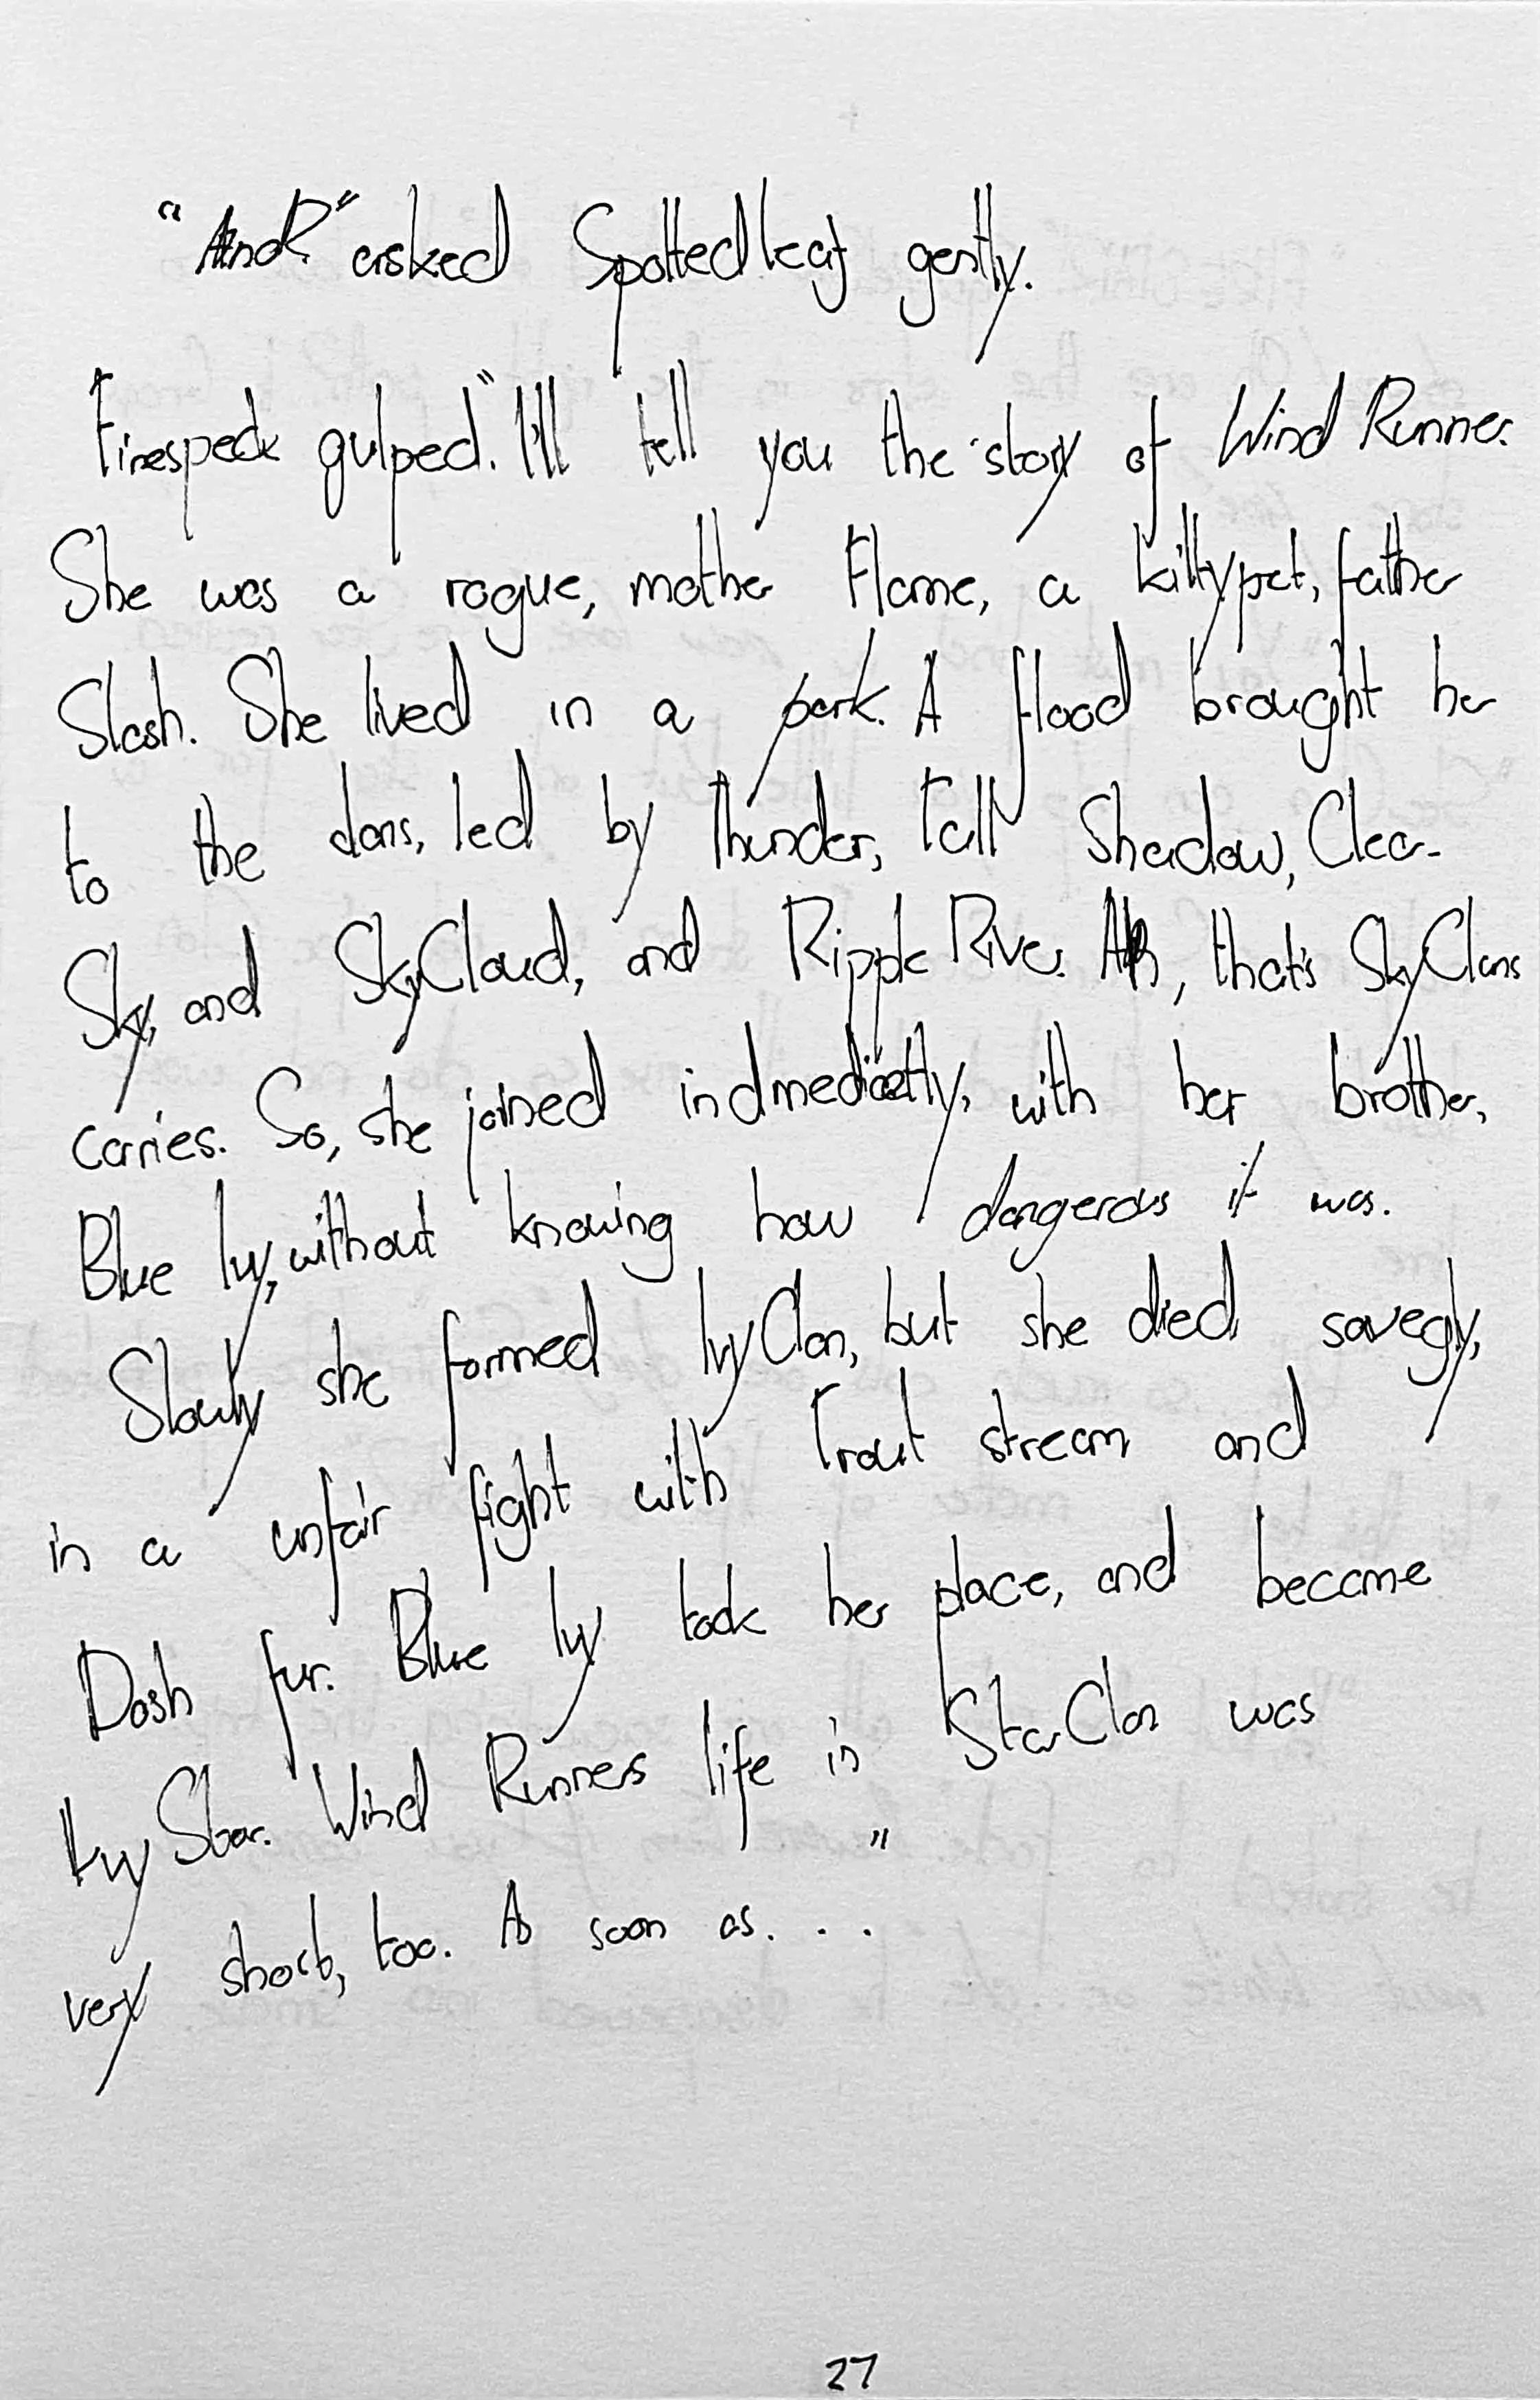 "And?" asked Spottedleaf gently.
Firespeck gulped. "I'll tell you the story of Wind Runner.
She was a rogue, mother Flame, a kittypet, father
Slash. She lived in a park. A flood brought her
to the clans, led by Thunder, Tall Shadow, Clear
Sky, and SkyCloud, and Ripple River. Ah, that's SkyClans
carries. So, she joined indmedicetly, with her brother,
Blue Ivy, without knowing how dangerous it was.
Slowly she formed IvyClan, but she died savegly,
in a unfair fight with Trout stream and
Dash fur. Blue Ivy took her place, and became
Ivy Star. Wind Runners life in StarClan was
very short, too. As soon as. . . "
27